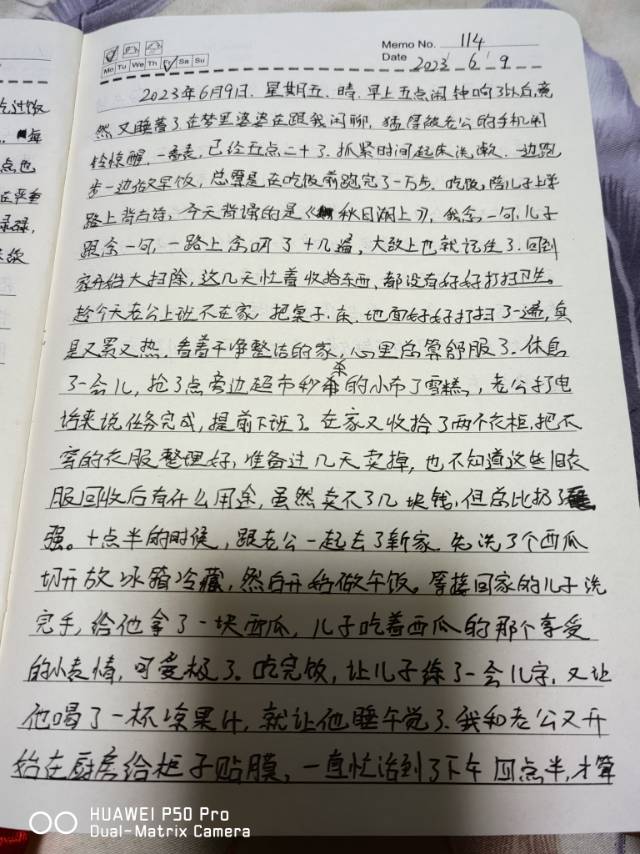 Memo No. 114
Mo Tu We Th Fr Sa Su
Date 2023 6 9
2023年6月9日 星期五 晴 早上五点闹钟响了以后,竟
然又睡着了在梦里婆婆在跟我闲聊,猛得被老公的手机闹
铃惊醒,一看表,已经五点二十了.抓紧时间起床洗漱.一边跑
步一边做早饭,总算是在吃饭前跑完了一万步.吃饭,陪儿子上学
路上背古诗,今天背诵的是《秋日湖上》,我念一句,儿子
跟念一句,一路上念叨了十几遍,大致上也就记住了.回到
家开始大扫除,这几天忙着收拾东西,都没有好好打扫卫生.
趁今天老公上班不在家,把桌子.床.地面好好打扫了一遍,真
是又累又热.看着干净整洁的家,心里总算舒服了.休息
了一会儿,抢了点旁边超市秒杀的小布丁雪糕,老公打电
话来说任务完成,提前下班了.在家又收拾了两个衣柜,把不
穿的衣服整理好,准备过几天卖掉,也不知道这些旧衣
服回收后有什么用途,虽然卖不了几块钱,但总比扔了
强。十点半的时候,跟老公一起去了新家.先洗了个西瓜
切开放冰箱冷藏,然后开始做午饭。等接回家的儿子洗
完手,给他拿了一块西瓜,儿子吃着西瓜的那个享受
的小表情,可爱极了.吃完饭,让儿子练了一会儿字,又让
他喝了一杯凉果汁,就让他睡午觉了.我和老公又开
始在厨房给柜子贴膜,一直忙活到了下午四点半,才算
HUAWEI P50 Pro
Dual-Matrix Camera